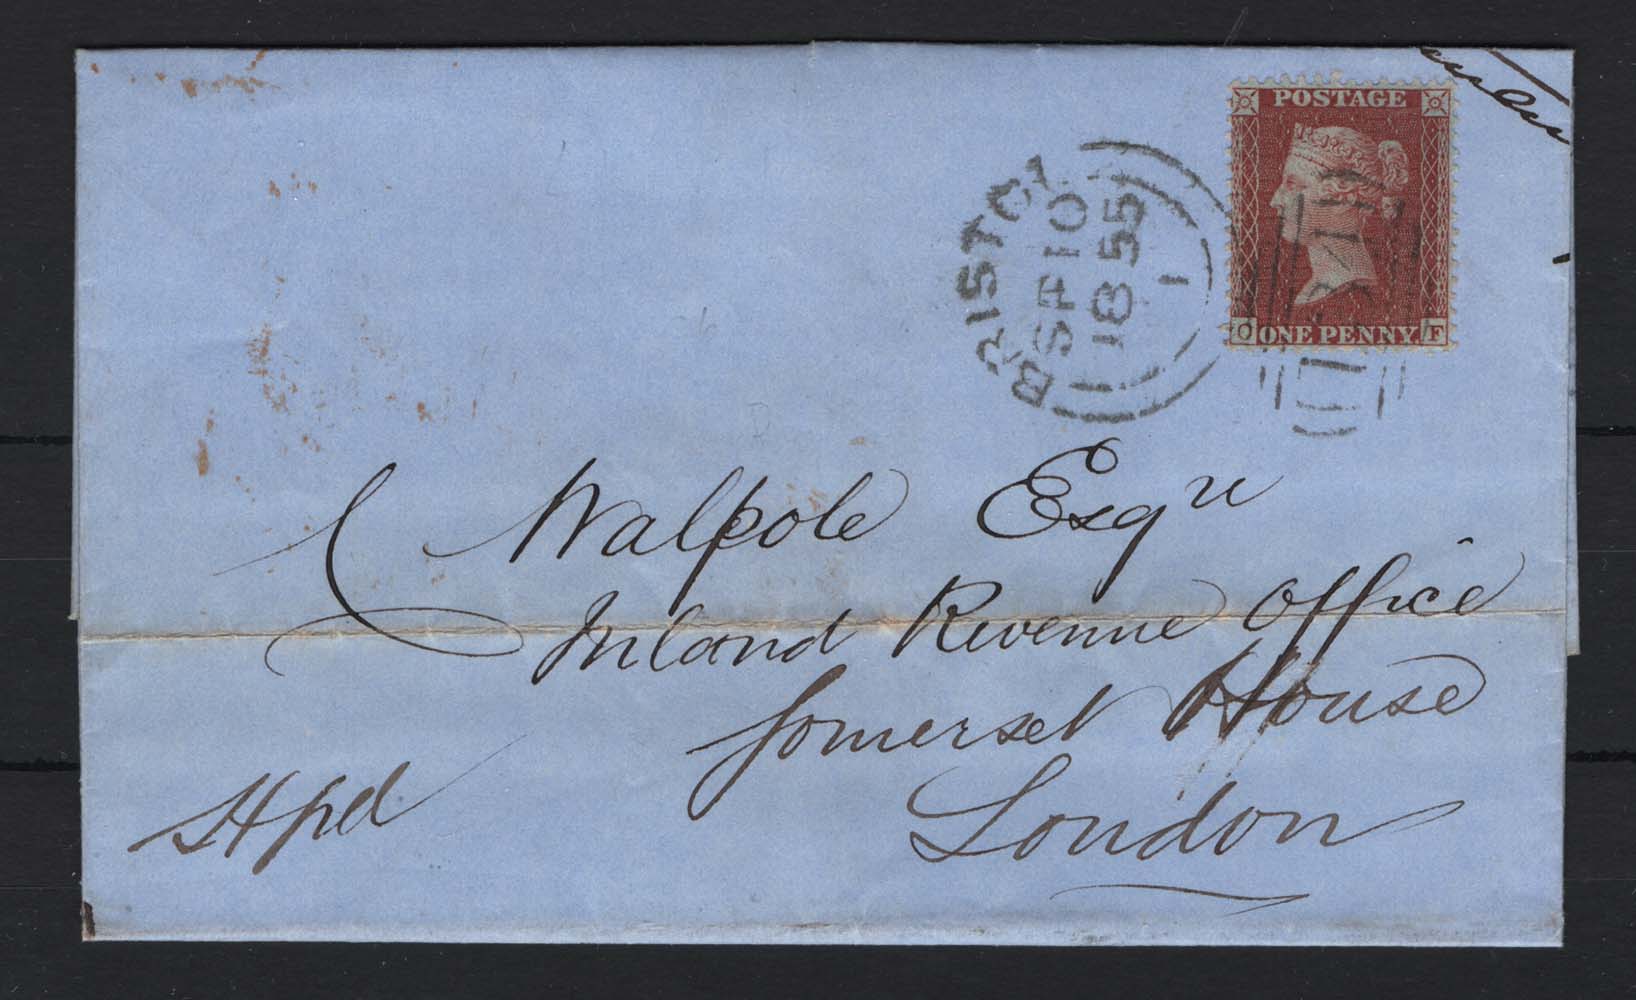 POSTAGE
ONE PENNY.
F
BRISTOL
SP 10
1855
1
Walpole Esqre
Inland Revenue Office
Somerset House
London